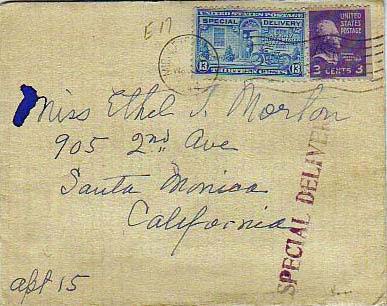 E 17
UNITED STATES POSTAGE
SPECIAL DELIVERY
13 THIRTEEN CENTS 13
UNITED
STATES
POSTAGE
3 CENTS 3
Miss Ethel T. Morton
905 2nd Ave
Santa Monica
California
SPECIAL DELIVERY
apt 15